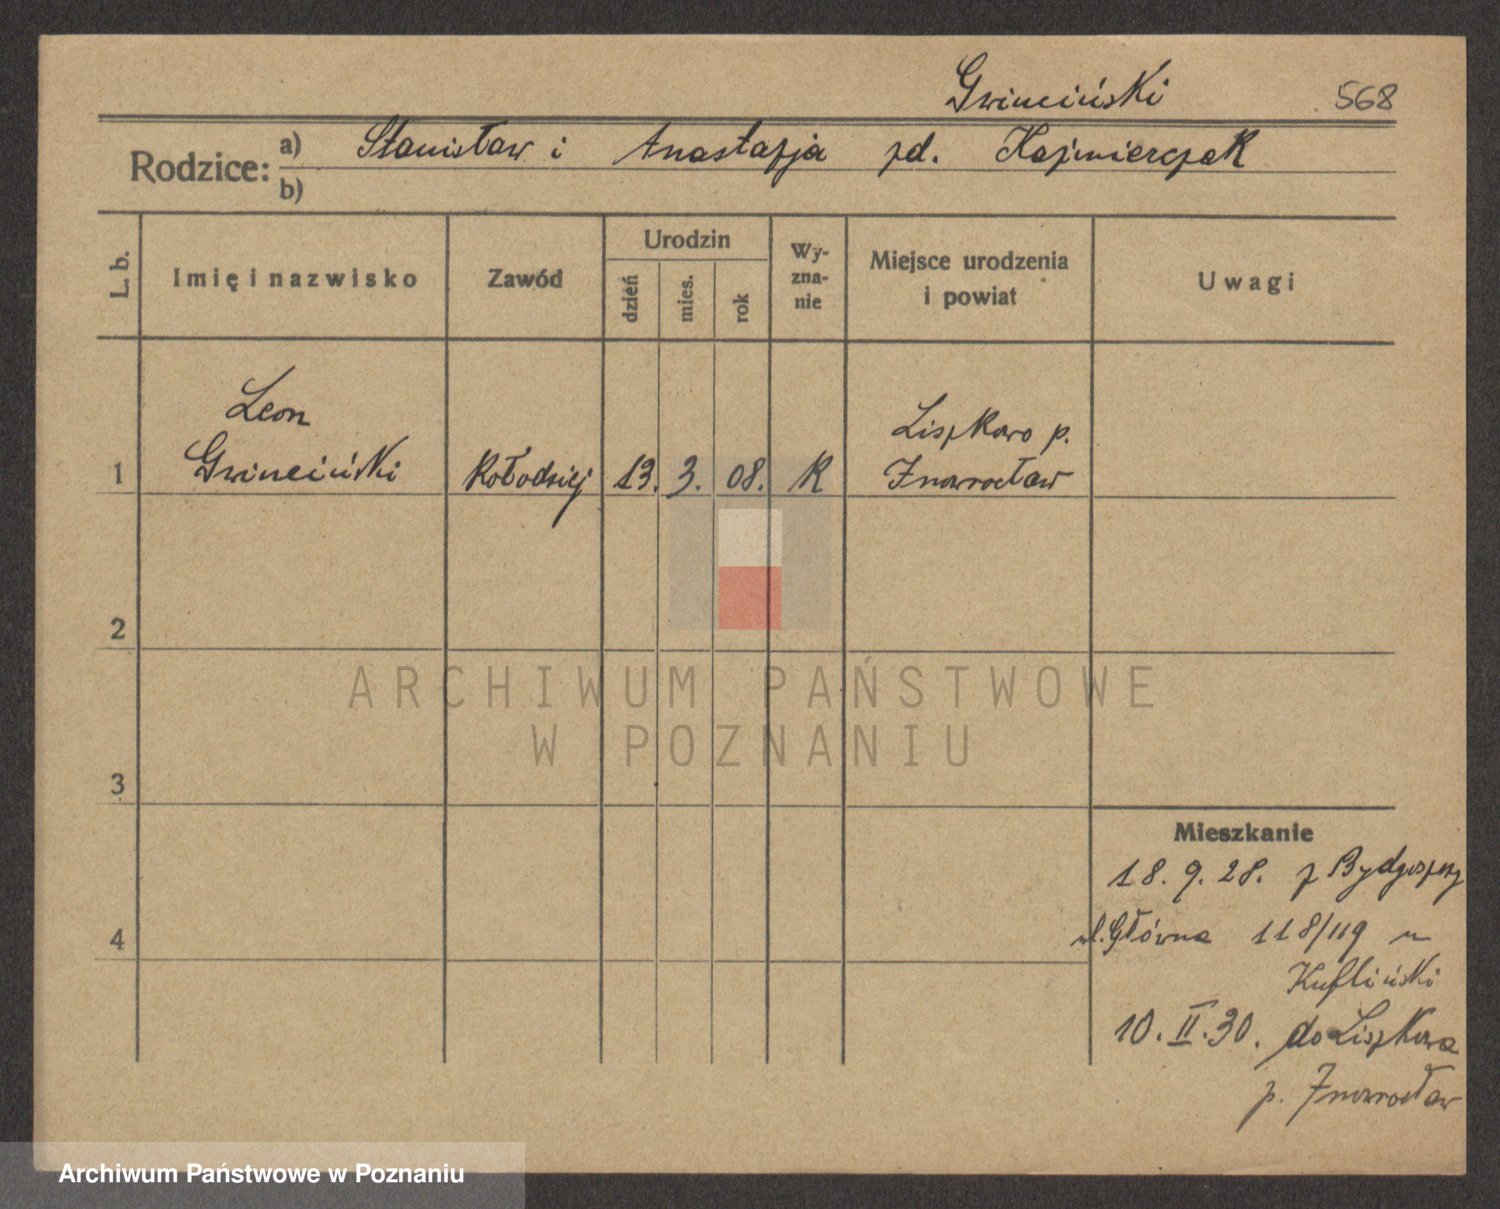 Gwinciński 568
Rodzice: a) Stanisław i Anastazja zd. Kaźmierczak
b)
L. b.
Imię i nazwisko
Zawód
Urodzin
dzień
mies.
rok
Wy-
zna-
nie
Miejsce urodzenia
i powiat
Uwagi
Leon
1 Gwinciński Kołodziej 13. 3. 08. K
Liszkowo p.
Inowrocław
2
ARCHIWUM PAŃSTWOWE
W POZNANIU
3
4
Mieszkanie
18. 9. 28. z Bydgoszczy
ul. Główna 118/119 u
Kufliński
10. II. 30. do Liszkowa
p. Inowrocław
Archiwum Państwowe w Poznaniu